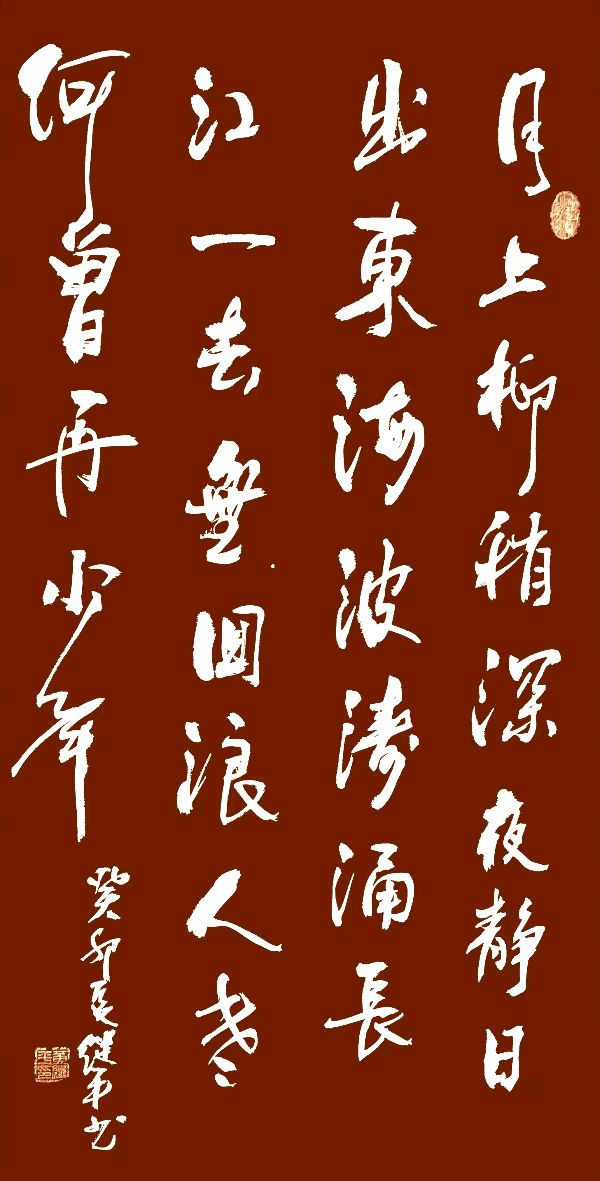 月上柳稍深夜静日
出東海波涛涌長
江一去無回浪人老
何曾再少年
癸卯夏继平书